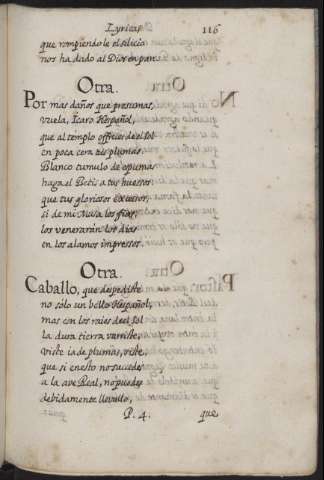 Lyricas. 116
que rompiendole el silicio
nos ha dado al Dios en pan.
Otra.
Por mas daños que presumas,
vuela, Icaro Español,
que al templo offreces del sol
en poca cera tus plumas.
Blanco tumulo de espumas
haga el Betis a tus huessos
que tus gloriosos excessos,
si de mi Musa los fias,
los venerarán los dias
en los alamos impressos.
Otra.
Caballo, que despediste
no solo un bello Español,
mas con los raios del sol
la dura tierra
viste ia de plumas, viste,
que si en esto no sucedes
a la ave Real, no puedes
debidamente llevallo,
P. 4. que